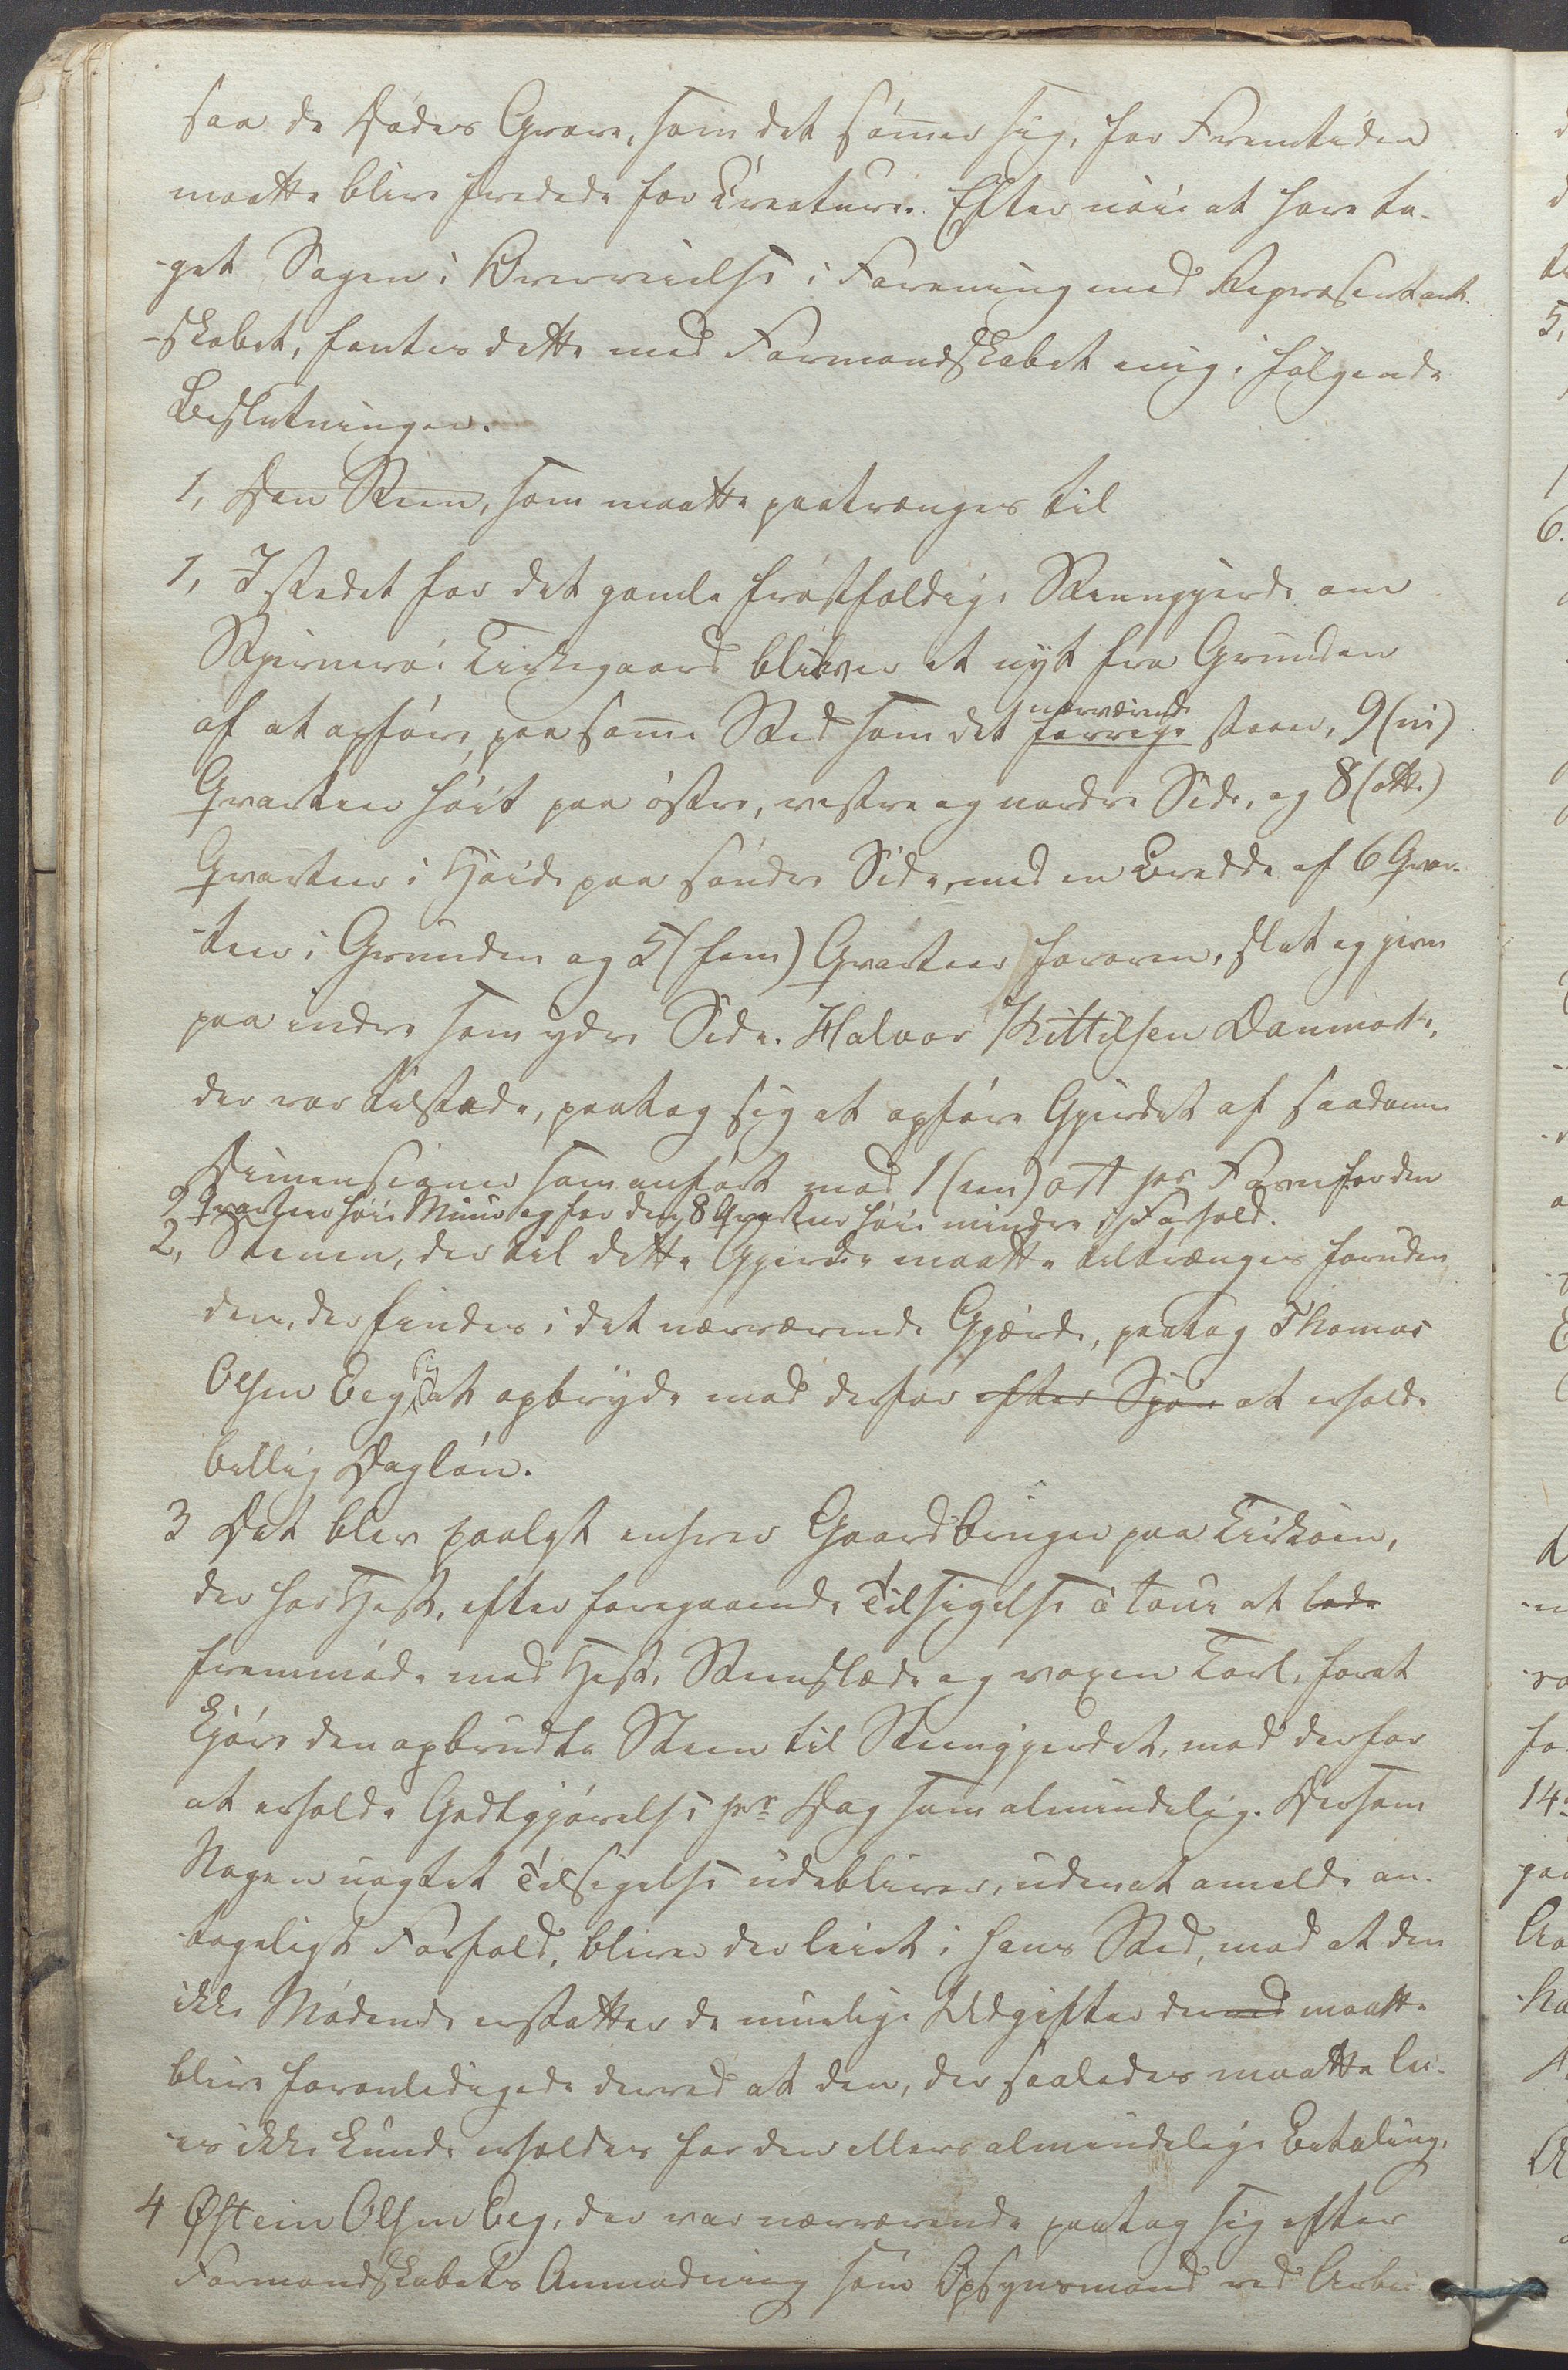 saa de Dødes Grave, som det sømer sig, for Fremtiden
maatte blive fredede for Kreature. Efter nøie at have ta-
-get Sagen i Overveielse i Forening med Repræsentant-
-skabet, fantes dette med Formandskabet enig i følgende
Beslutninger.
1, Den Steen, som maatte paatrænges til
1, Istedet for det gamle brøstfældige Steengjerde om
Stjernerø Kirkegaard bliver et nyt fra Grunden
af at opføre, paa same Sted som det forrige nærværende staar, 9 (ni)
Qvarteer høit paa østre, vestre og nordre Side, og 8 (otte)
Qvarteer i Høide paa søndre Side, med en Bredde af 6 Qvar-
-teer i Grunden og 5 (fem) Qvarteer foroven, slet og jevn
paa indre som ydre Side. Halvor Kittilsen Danmark,
der var tilstede, paatog sig at opføre Gjerdet af saadanne
Dimensioner som anført mod 1 (een) ort pr Favn for den
9 Qvarteer høie Muur og for den 8 Qvarteer høie mindre i Forhold.
2, Stenen, der til dette Gjerde maatte tiltrænges foruden
den, der findes i det nærværende Gjærde, paatog Thomas
Olsen Eeg sig at opbryde mod derfor efter Skjøn at erholde
billig Dagløn.
3 Det blev paalagt enhver Gaardbruger paa Kirkøen,
der har Hest, efter foregaaende Tilsigelse a tour at lade
fremmøde med Hest, Steenslæde og voxen Karl, forat
kjøre den opbrudte Steen til Steengjerdet, mod derfor
at erholde Godtgjørelse pr Dag som almindelig. Dersom
Nogen uagtet Tilsigelse udebliver, uden at anmelde an-
-tageligt Forfald, bliver der leiet i hans Sted, mod at den
ikke Mødende erstatter de muelige Udgifter der ved maatte
blive foranledigede derved at den, der saaledes maatte lei-
-es ikke kunde erholdes for den ellers almindelige Betaling.
4 Østein Olsen Eeg, der var nærværende paatog sig efter
Formandskabets Anmodning som Opsynsmand ved Arbei-